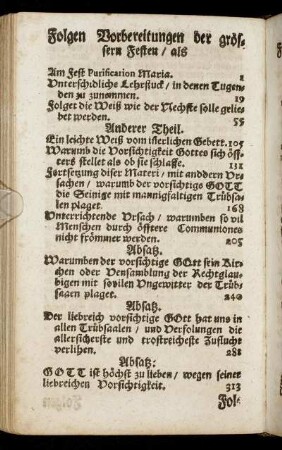 Folgen Vorbereitungen der grös-
sern Festen / als
Am Fest Purification Maria. 1
Unterschidliche Lehrstuck / in denen Tugen-
den zu zunemmen. 19
Folget die Weiß wie der Nechste solle gelie-
bet werden. 55
Anderer Theil.
Ein leichte Weiß vom iñerlichen Gebett. 105
Warumb die Vorsichtigkeit Gottes sich öff-
ters stellet als ob sie schlaffe. 131
Fortsetzung diser Materi / mit anddern Vr-
sachen / warumb der vorsichtige GOTT
die Seinige mit mannigfaltigen Trübsa-
len plaget. 168
Unterrichtende Vrsach / warumben so vil
Menschen durch öfftere Communiones
nicht frömmer werden. 205
Absatz.
Warumben der vorsichtige GOtt sein Kir-
chen oder Versamblung der Rechtglau-
bigen mit sovilen Ungewitter der Trüb-
saaen plaget. 240
Absatz.
Der liebreich vorsichtige GOtt hat uns in
allen Trübsaalen / und Verfolungen die
allersicherste und trostreicheste Zuflucht
verlihen. 281
Absatz:
GOTT ist höchst zu lieben / wegen seiner
liebreichen Vorsichtigkeit. 313
Fol-